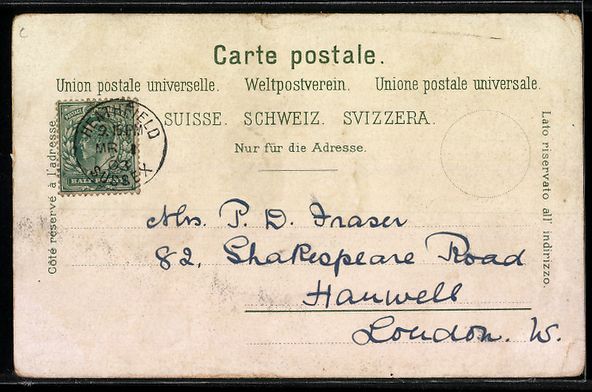 Carte postale.
Union postale universelle. Weltpostverein. Unione postale universale.
SUISSE. SCHWEIZ. SVIZZERA.
Nur für die Adresse.
Côté réservé à l'adresse.
Lato riservato all' indirizzo.
HEATHFIELD
SUSSEX
Mrs. P. D. Fraser
82, Shakespeare Road
Hanwell
London. W.